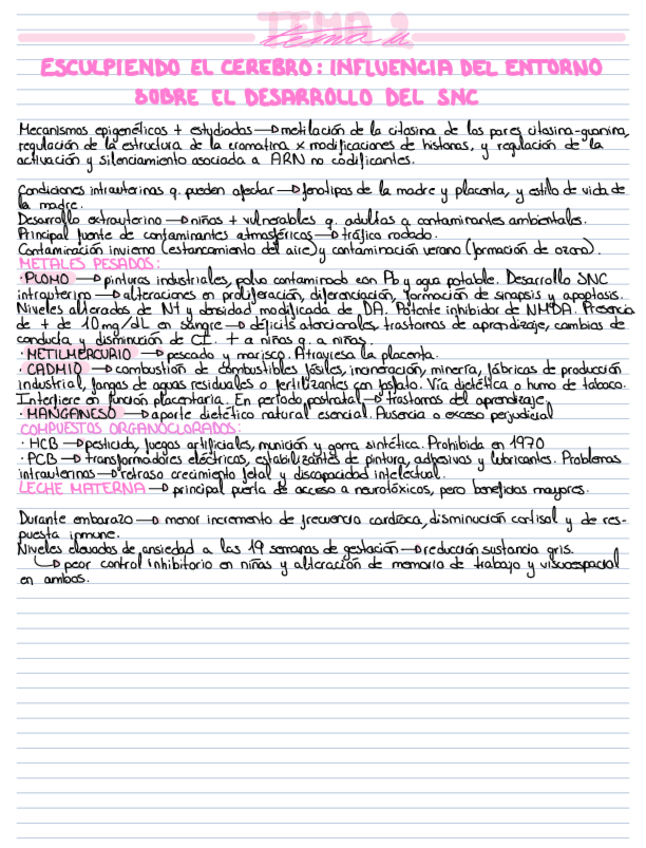 TEMA 2
tema u
ESCULPIENDO EL CEREBRO: INFLUENCIA DEL ENTORNO
SOBRE EL DESARROLLO DEL SNC
Mecanismos epigenéticos + estudiados → metilación de la citosina de los pares citosina-guanina,
regulación de la estructura de la cromatina x modificaciones de histonas, y regulación de la
activación y silenciamiento asociada a ARN no codificantes.
Condiciones intrauterinas q. pueden afectar → fenotipos de la madre y placenta, y estilo de vida de
la madre.
Desarrollo extrauterino → niños + vulnerables q. adultos a contaminantes ambientales.
Principal fuente de contaminantes atmosféricos → tráfico rodado.
Contaminación invierno (estancamiento del aire) y contaminación verano (formación de ozono).
METALES PESADOS:
· PLOMO → pinturas industriales, polvo contaminado con Pb y agua potable. Desarrollo SNC
intrauterino → alteraciones en proliferación, diferenciación, formación de sinapsis y apoptosis.
Niveles alterados de Nt y densidad modificada de DA. Potente inhibidor de NMDA. Presencia
de + de 10 mg/dL en sangre → déficits atencionales, trastornos de aprendizaje, cambios de
conducta y disminución de CI. + a niños q. a niñas.
· METILMERCURIO → pescado y marisco. Atraviesa la placenta.
· CADMIO → combustión de combustibles fósiles, incineración, minería, fábricas de producción
industrial, fangos de aguas residuales o fertilizantes con fosfato. Vía dietética o humo de tabaco.
Interfiere en función placentaria. En período postnatal → trastornos del aprendizaje.
· MANGANESO → aporte dietético natural esencial. Ausencia o exceso perjudicial
COMPUESTOS ORGANOCLORADOS:
· HCB → pesticida, fuegos artificiales, munición y goma sintética. Prohibida en 1970
· PCB → transformadores eléctricos, estabilizantes de pintura, adhesivos y lubricantes. Problemas
intrauterinos → retraso crecimiento fetal y discapacidad intelectual.
LECHE MATERNA → principal puerta de acceso a neurotóxicos, pero beneficios mayores.
Durante embarazo → menor incremento de frecuencia cardíaca, disminución cortisol y de res-
puesta inmune.
Niveles elevados de ansiedad a las 19 semanas de gestación → reducción sustancia gris.
↳ peor control inhibitorio en niñas y alteración de memoria de trabajo y visuoespacial
en ambos.